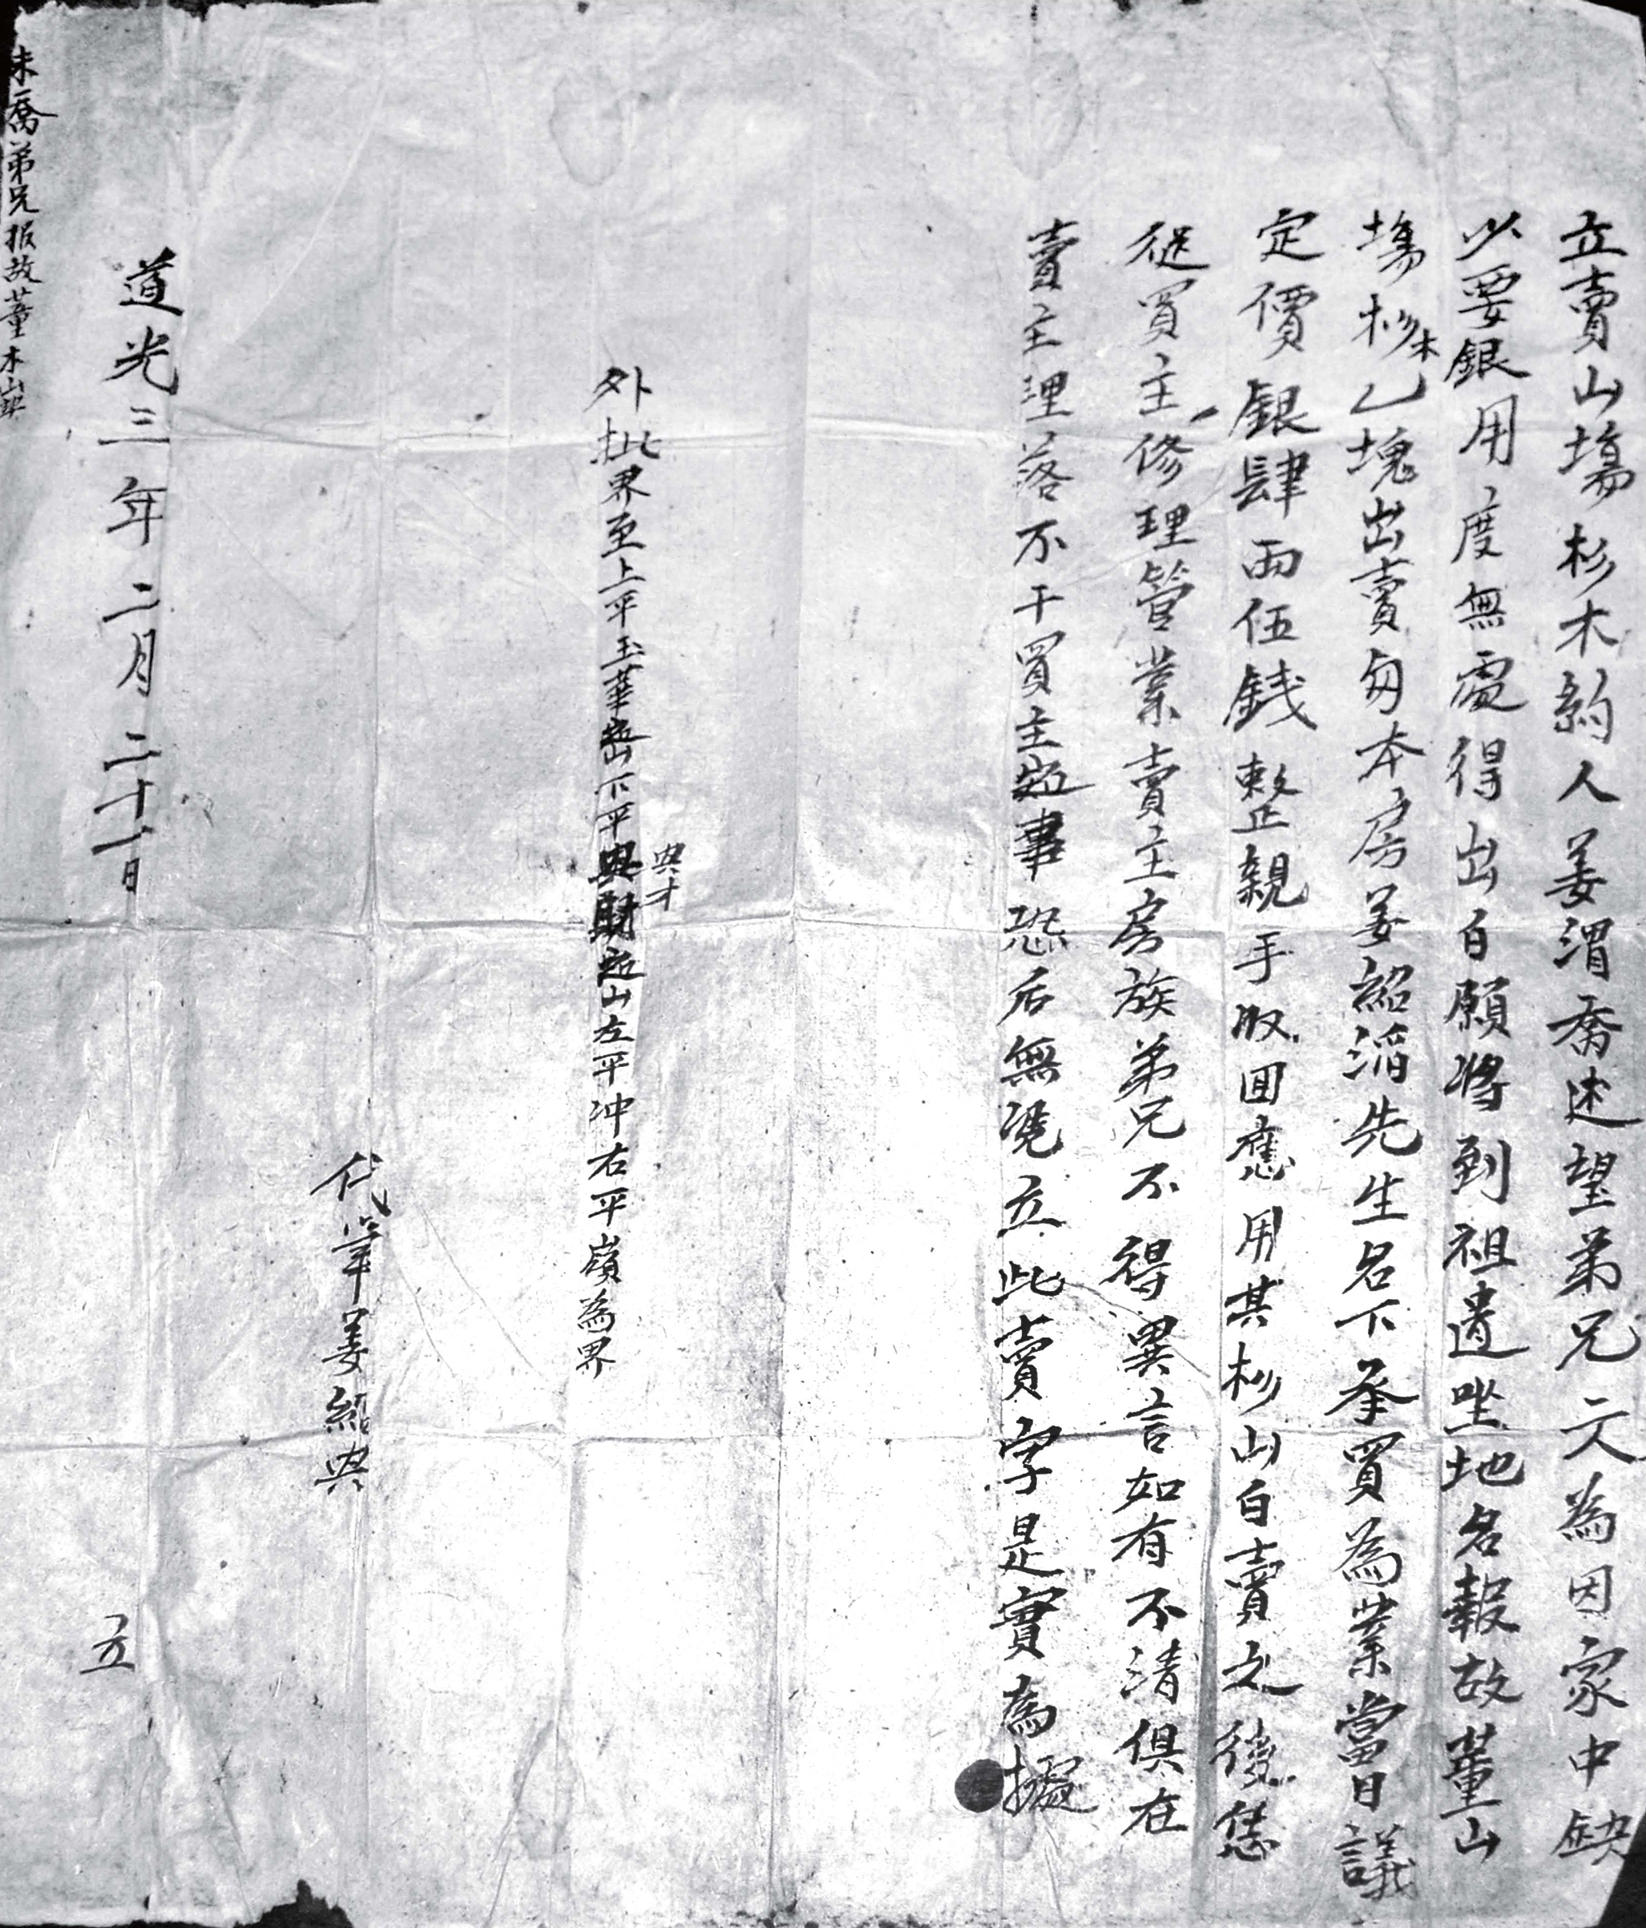 立賣山塲杉木約人姜渭喬述望弟兄二人為因家中缺
少要銀用度無處得出自願將到祖遺坐地名報故董山
塲杉木乙塊出賣匀本房姜紹滔先生名下承買為業當日議
定價銀肆両伍錢整親手收囬應用其杉山自賣之後恁
從買主修理管業賣主房族弟兄不得異言如有不清俱在
賣主理落不干買主之事恐后無凴立此賣字是實為據
外批界至上平玉華山下平與財之山左平冲右平嶺為界
與才
代筆姜紹與
道光三年二月二十一日
立
喬弟兄报故董木山